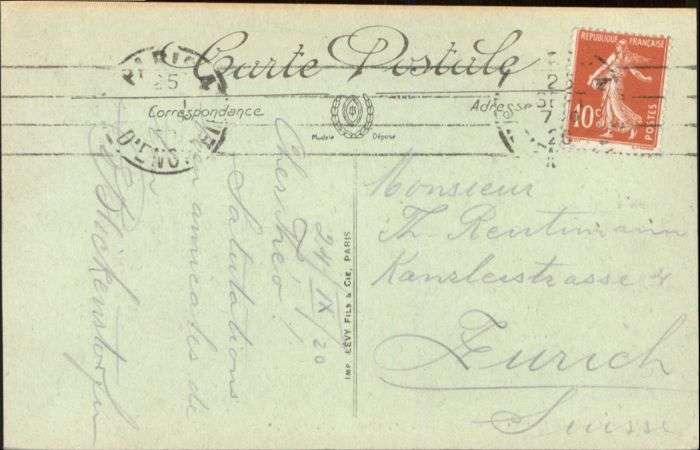 Carte Postale
Correspondance
Adresse
Modèle Déposé
RÉPUBLIQUE FRANÇAISE
10c
POSTES
PARIS
25
D'ENGHIEN
24/IX/20
Cher Théo!
Salutations
bien amicales de
Blickenstorfer
IMP. LÉVY FILS & CIE, PARIS
Monsieur
Th. Rentimann
Kanzleistrasse
Zürich
Suisse